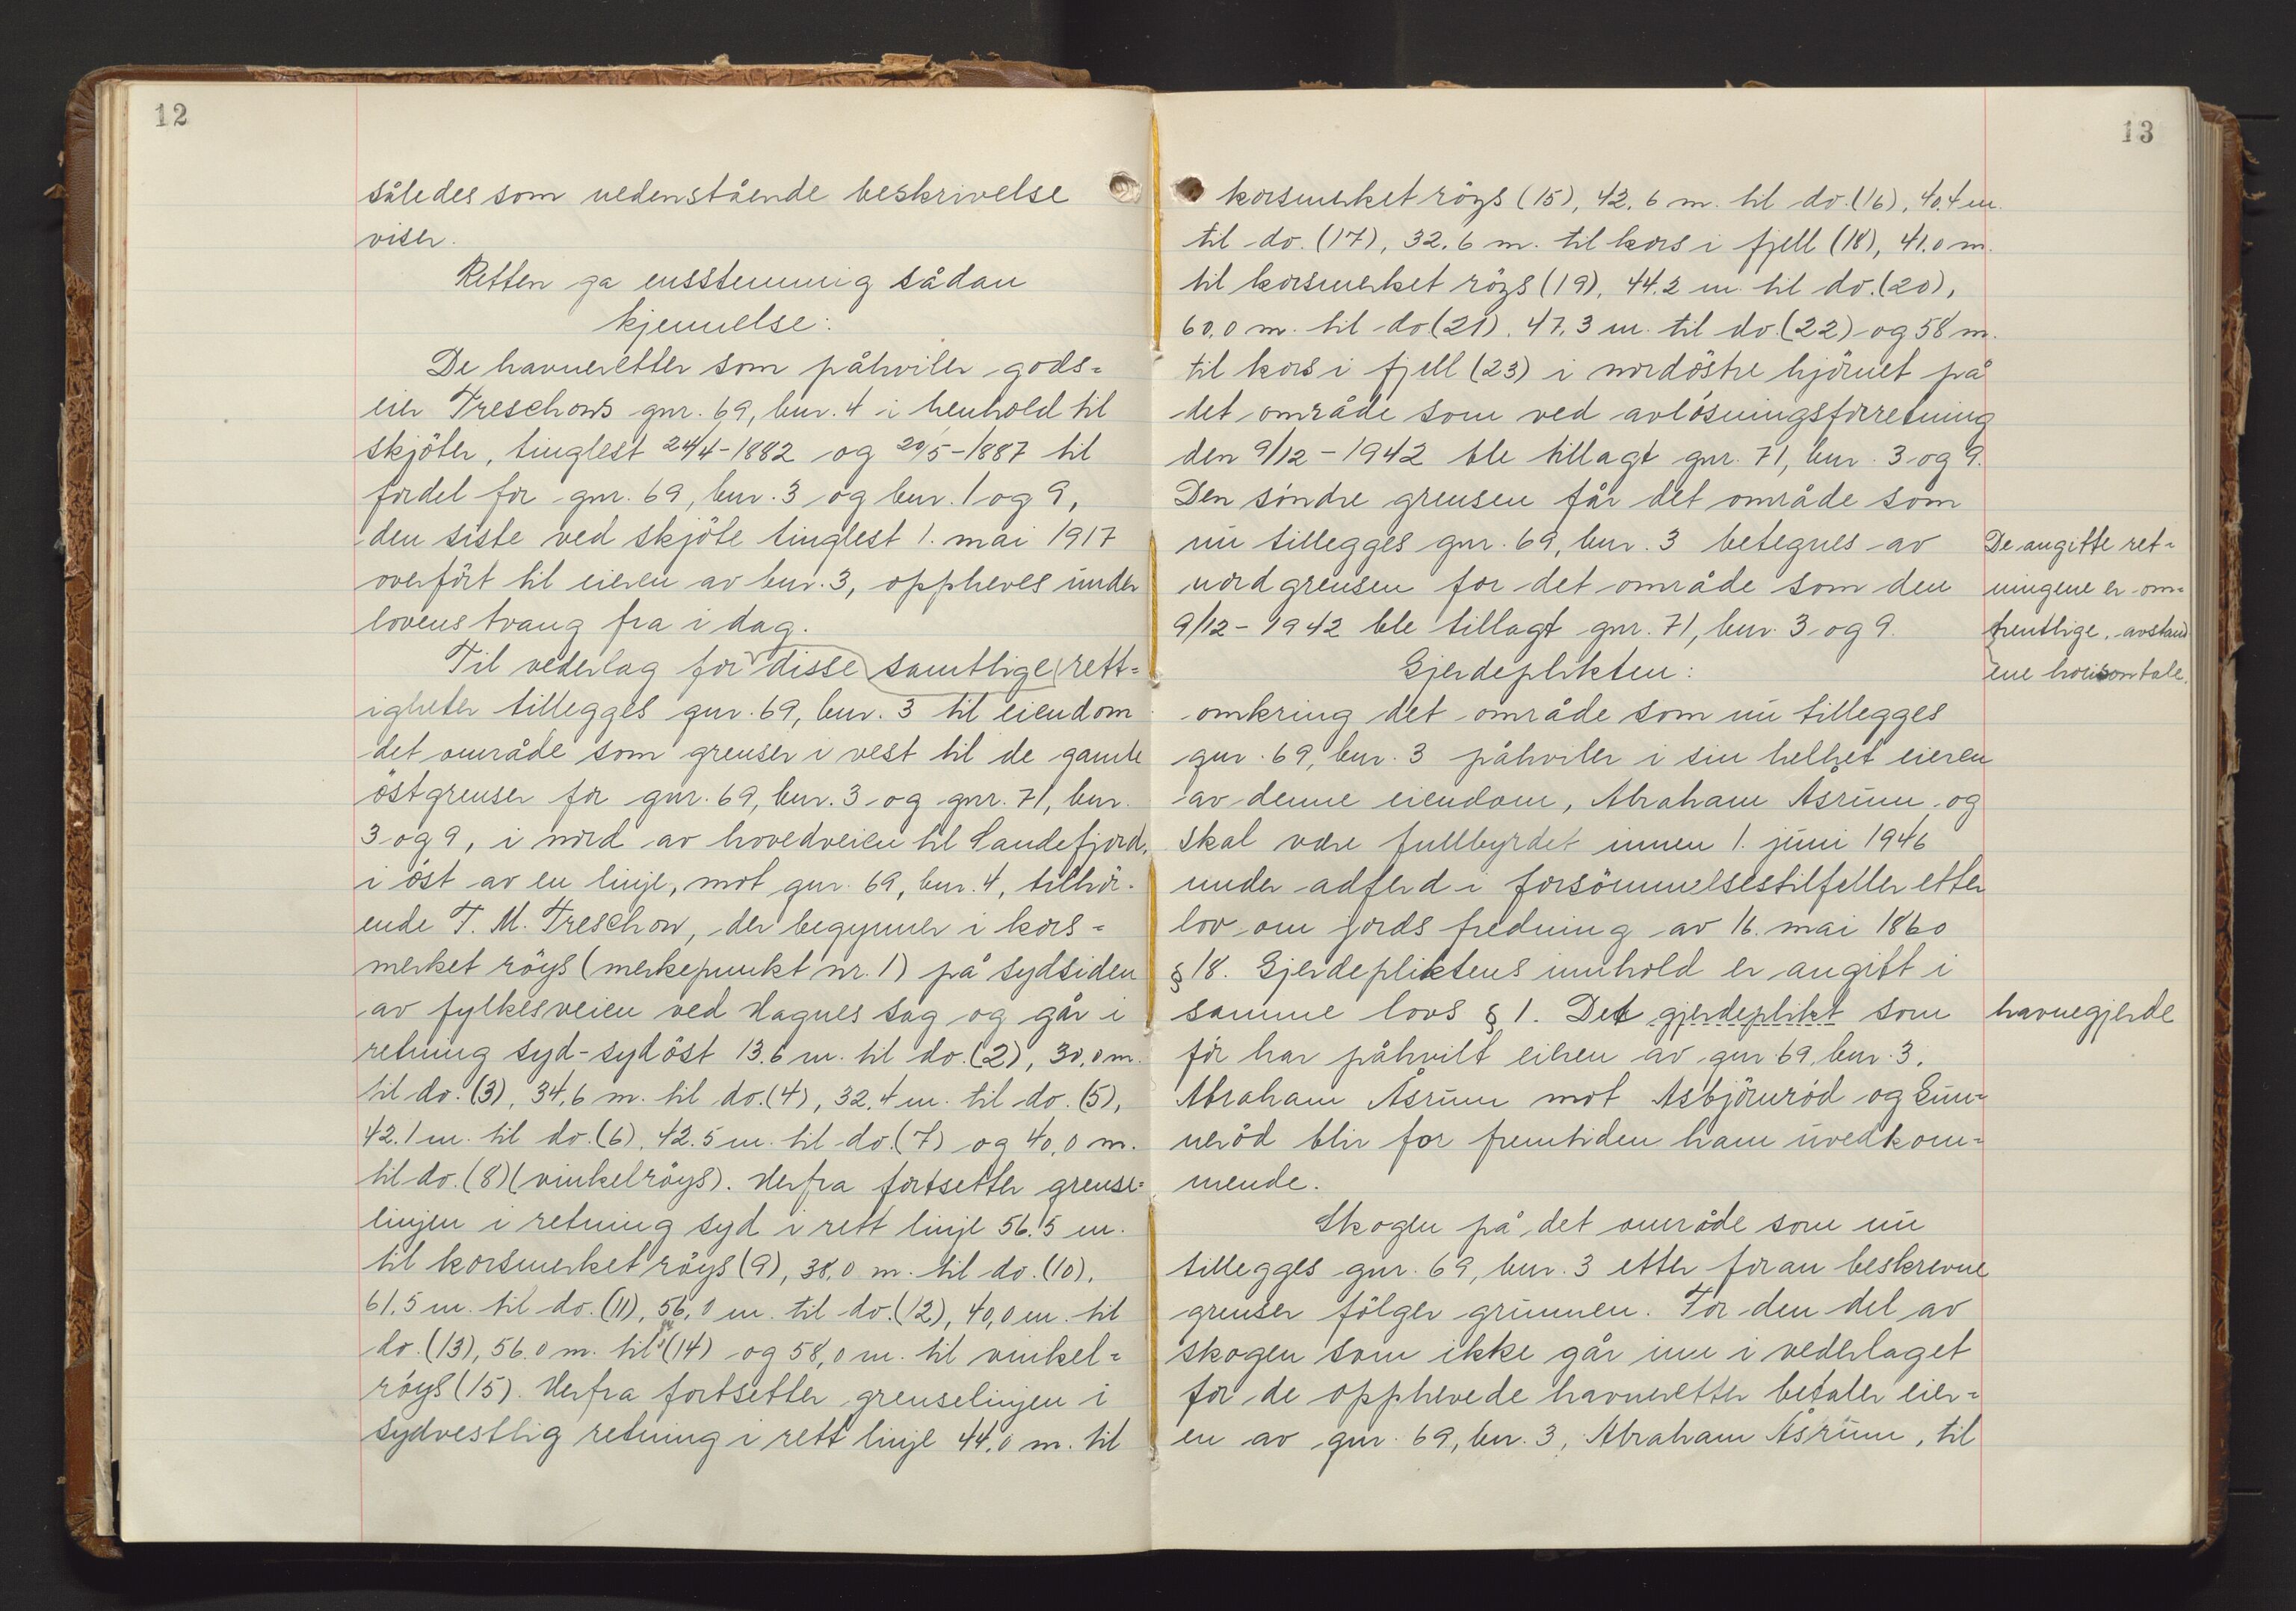 12
således som nedenstående beskrivelse
viser.
Retten ga ensstemmig sådan
kjennelse:
De havneretter som påhviler gods=
eier Treschows gnr. 69, bnr. 4 i henhold til
skjöter, tinglest 24/4-1882 og 20/5-1887 til
fordel for gnr. 69, bnr. 3 og bnr. 1 og 9,
den siste ved skjöte tinglest 1. mai 1917
overfört til eieren av bnr. 3, oppheves under
lovens tvang fra i dag.
Til vederlag for disse samtlige rett=
igheter tillegges gnr. 69, bnr. 3 til eiendom
det område som grenser i vest til de gamle
östgrenser for gnr. 69, bnr. 3 og gnr. 71, bnr.
3 og 9, i nord av hovedveien til Sandefjord,
i öst av en linje, mot gnr. 69, bnr. 4, tilhör-
ende F. M. Treschow, der begynner i kors=
merket röys (merkepunkt nr. 1) på sydsiden
av fylkesveien ved Hagnes sag og går i
retning syd-sydöst 13.6 m. til do. (2), 30,0 m.
til do. (3), 34,6 m. til do. (4), 32,4 m. til do. (5),
42.1 m. til do. (6), 42.5 m. til do. (7) og 40,0 m.
til do. (8) (vinkelröys). Herfra fortsetter grense=
linjen i retning syd i rett linje 56.5 m.
til korsmerket röys (9), 38,0 m. til do. (10),
61.5 m. til do. (11), 56,0 m. til do. (12), 40,0 m. til
do. (13), 56.0 m. til (14) og 58,0 m. til vinkel=
röys (15). Herfra fortsetter grenselinjen i
sydvestlig retning i rett linje 44,0 m. til
13
korsmerket röys (15), 42.6 m. til do. (16), 40.4 m.
til do. (17), 32.6 m. til kors i fjell (18), 41.0 m.
til korsmerket röys (19), 44.2 m. til do. (20),
60,0 m. til do (21), 47.3 m. til do. (22) og 58 m.
til kors i fjell (23) i nordöstre hjörnet på
det område som ved avlösningsforretning
den 9/12-1942 ble tillagt gnr. 71, bnr. 3 og 9.
Den söndre grensen får det område som
nu tillegges gnr. 69, bnr. 3 betegnes av
nordgrensen for det område som den
9/12-1942 ble tillagt gnr. 71, bnr. 3 og 9.
De angitte ret=
ningene er om=
trentlige, avstand
ene horisontale.
Gjerdeplikten:
omkring det område som nu tillegges
gnr. 69, bnr. 3 påhviler i sin helhet eieren
av denne eiendom, Abraham Åsrum og
skal være fullbyrdet innen 1. juni 1946
under adferd i forsömmelsestilfeller etter
lov om jords fredning av 16. mai 1860
§ 18. Gjerdepliktens innhold er angitt i
samme lovs § 1. Det gjerdeplikt som
havnegjerde
för har påhvilt eieren av gnr. 69, bnr. 3,
Abraham Åsrum mot Asbjörnröd og Gun-
neröd blir for fremtiden ham uvedkom=
mende.
Skogen på det område som nu
tillegges gnr. 69, bnr. 3 etter foran beskrevne
grenser fölger grunnen. For den del av
skogen som ikke går inn i vederlaget
for de opphevede havneretter betaler eier=
en av gnr. 69, bnr. 3, Abraham Åsrum, til